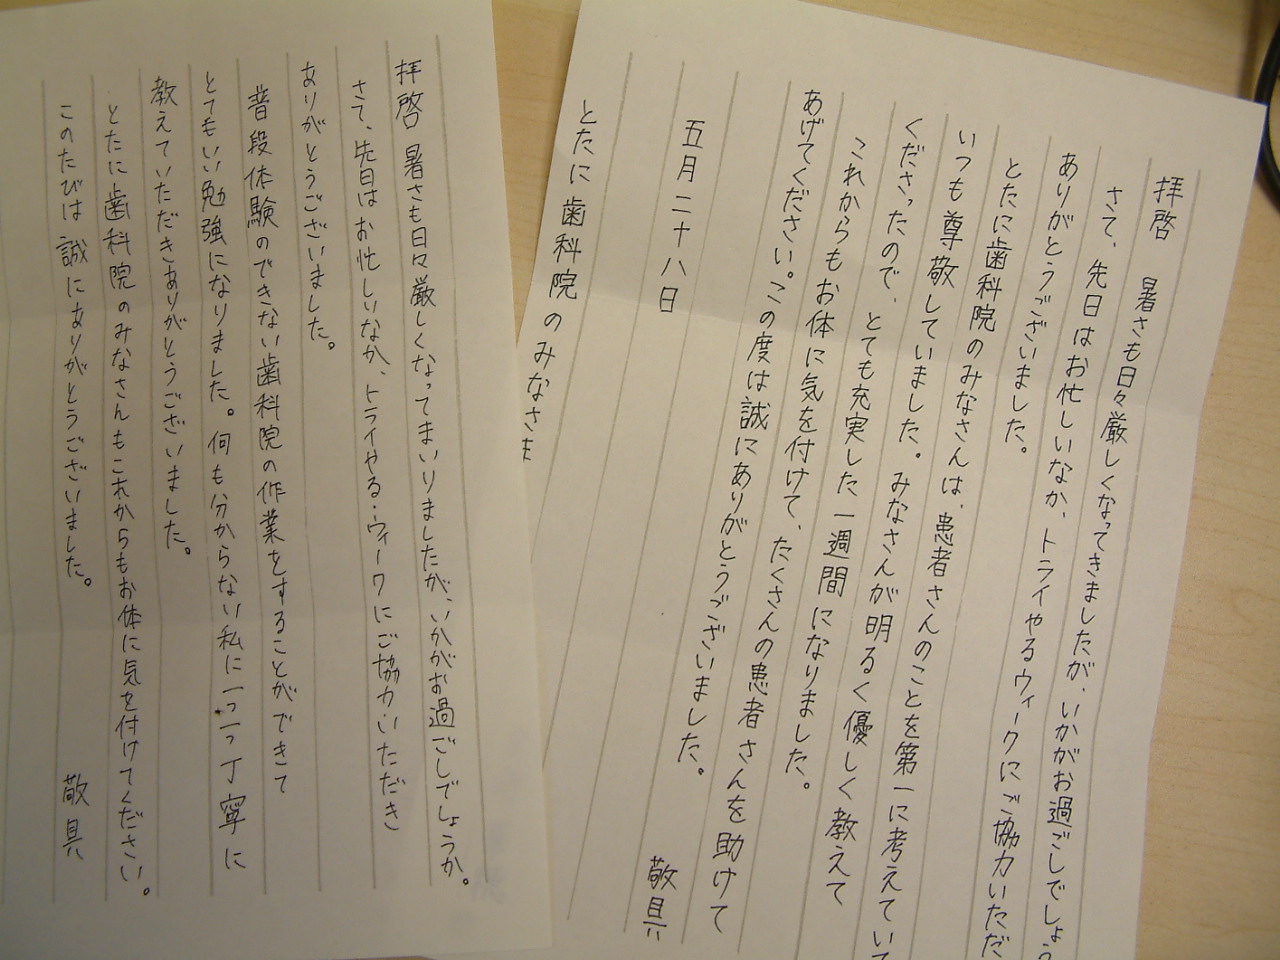 拝啓 暑さも日々厳しくなってきましたが、いかがお過ごしでしょう
さて、先日はお忙しいなか、トライやるウィークにご協力いただ
ありがとうございました。
とたに歯科院のみなさんは、患者さんのことを第一に考えてい
いつも尊敬していました。みなさんが明るく優しく教えて
くださったので、とても充実した一週間になりました。
これからもお体に気を付けて、たくさんの患者さんを助けて
あげてください。この度は誠にありがとうございました。
敬具
五月二十八日
とたに歯科院のみなさま
拝啓 暑さも日々厳しくなってまいりましたが、いかがお過ごしでしょうか。
さて、先日はお忙しいなか、トライやる・ウィークにご協力いただき
ありがとうございました。
普段体験のできない歯科院の作業をすることができて
とてもいい勉強になりました。何も分からない私に一つ一つ丁寧に
教えていただきありがとうございました。
とたに歯科院のみなさんもこれからもお体に気を付けてください。
このたびは誠にありがとうございました。
敬具